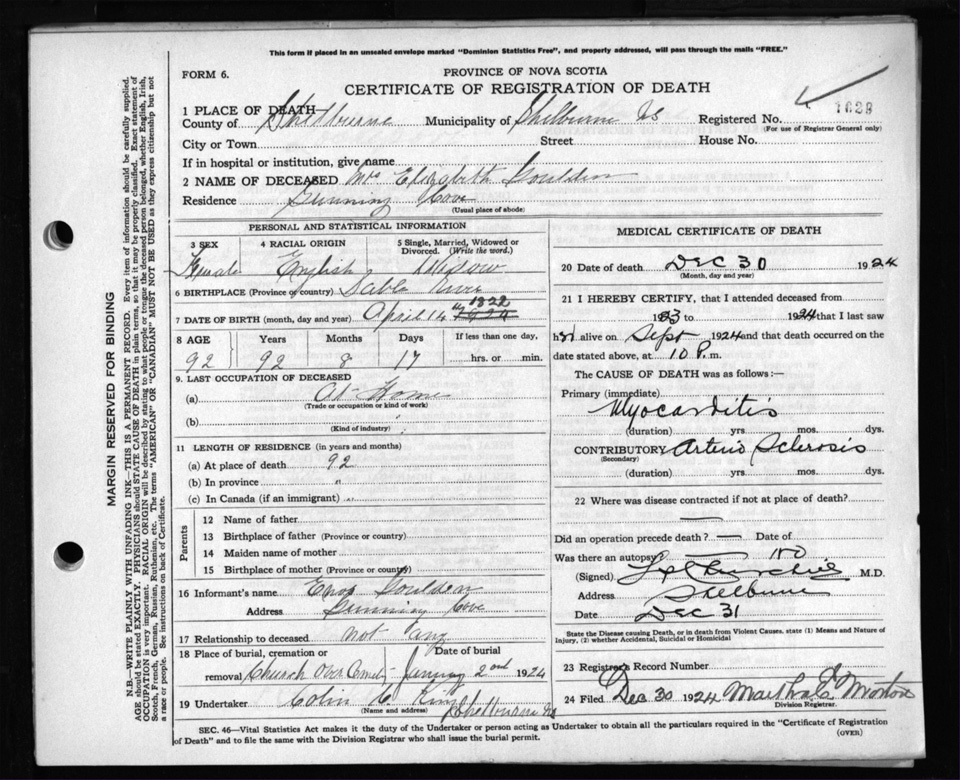 This form if placed in an unsealed envelope marked "Dominion Statistics Free", and properly addressed, will pass through the mails "FREE."
FORM 6.
PROVINCE OF NOVA SCOTIA
CERTIFICATE OF REGISTRATION OF DEATH
1 PLACE OF DEATH
County of Shelburne Municipality of Shelburne NS Registered No. 1629
(For use of Registrar General only)
City or Town Street House No.
If in hospital or institution, give name
2 NAME OF DECEASED Mrs Elizabeth Goulden
Residence Gunning Cove
(Usual place of abode)
PERSONAL AND STATISTICAL INFORMATION
3 SEX 4 RACIAL ORIGIN 5 Single, Married, Widowed or Divorced. (Write the word.)
Female English Widow
6 BIRTHPLACE (Province or country) Sable River
7 DATE OF BIRTH (month, day and year) April 14 th 1832
8 AGE Years Months Days If less than one day,
92 92 8 17 hrs. or min.
9. LAST OCCUPATION OF DECEASED
(a) At Home
(Trade or occupation or kind of work)
(b)
(Kind of industry)
11 LENGTH OF RESIDENCE (in years and months)
(a) At place of death 92
(b) In province "
(c) In Canada (if an immigrant) "
Parents
12 Name of father
13 Birthplace of father (Province or country)
14 Maiden name of mother
15 Birthplace of mother (Province or country)
16 Informant's name Goulden
Address Gunning Cove
17 Relationship to deceased not any
18 Place of burial, cremation or removal Date of burial
Church Over Cemety January 2nd 1924
19 Undertaker Colin C. King
(Name and address) Shelburne NS
MEDICAL CERTIFICATE OF DEATH
20 Date of death Dec 30 1924
(Month, day and year)
21 I HEREBY CERTIFY, that I attended deceased from
1923 to 1924 that I last saw
her alive on Sept 1924 and that death occurred on the
date stated above, at 10 P.m.
The CAUSE OF DEATH was as follows:—
Primary (immediate)
Myocarditis
(duration) yrs. mos. dys.
CONTRIBUTORY Arterio Sclerosis
(Secondary)
(duration) yrs. mos. dys.
22 Where was disease contracted if not at place of death?
—
Did an operation precede death? — Date of
Was there an autopsy? no
(Signed) Churchill M.D.
Address Shelburne
Date Dec 31
State the Disease causing Death, or in death from Violent Causes, state (1) Means and Nature of
Injury, (2) whether Accidental, Suicidal or Homicidal
23 Registrar's Record Number
24 Filed Dec 30 1924 Martha E. Morton
Division Registrar.
SEC. 46—Vital Statistics Act makes it the duty of the Undertaker or person acting as Undertaker to obtain all the particulars required in the "Certificate of Registration
of Death" and to file the same with the Division Registrar who shall issue the burial permit.
(OVER)
MARGIN RESERVED FOR BINDING
N.B.—WRITE PLAINLY WITH UNFADING INK—THIS IS A PERMANENT RECORD. Every item of information should be carefully supplied.
AGE should be stated EXACTLY. PHYSICIANS should STATE CAUSE OF DEATH in plain terms, so that it may be properly classified. Exact statement of
OCCUPATION is very important. RACIAL ORIGIN will be described by stating to what people or tongue the deceased person belonged, whether English, Irish,
Scotch, French, German, Russian, Ruthenian, etc. The terms "AMERICAN" or "CANADIAN" MUST NOT BE USED as they express citizenship but not
a race or people. See instructions on back of Certificate.